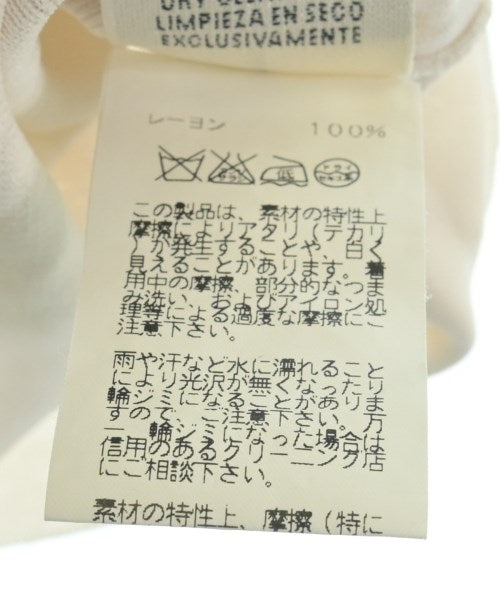 DRY CLEAN
LIMPIEZA EN SECO
EXCLUSIVAMENTE
レーヨン 100%
エンソサラシ
低
ドライ
セキユ系
この製品は、素材の特性上
摩擦によりアタリ(テカリ
)が発生することや、白く
見えることがあります。着
用中の摩擦、部分的なつま
み洗い、およびアイロン処
理等による過度な摩擦にご
注意下さい。
雨や汗など水に濡れること
により光沢が無くなったり
輪ジミになることがありま
すので、ご注意下さい。万
一、輪ジミになった場合は
信用のあるクリーニング店
にご相談下さい。
素材の特性上、摩擦(特に